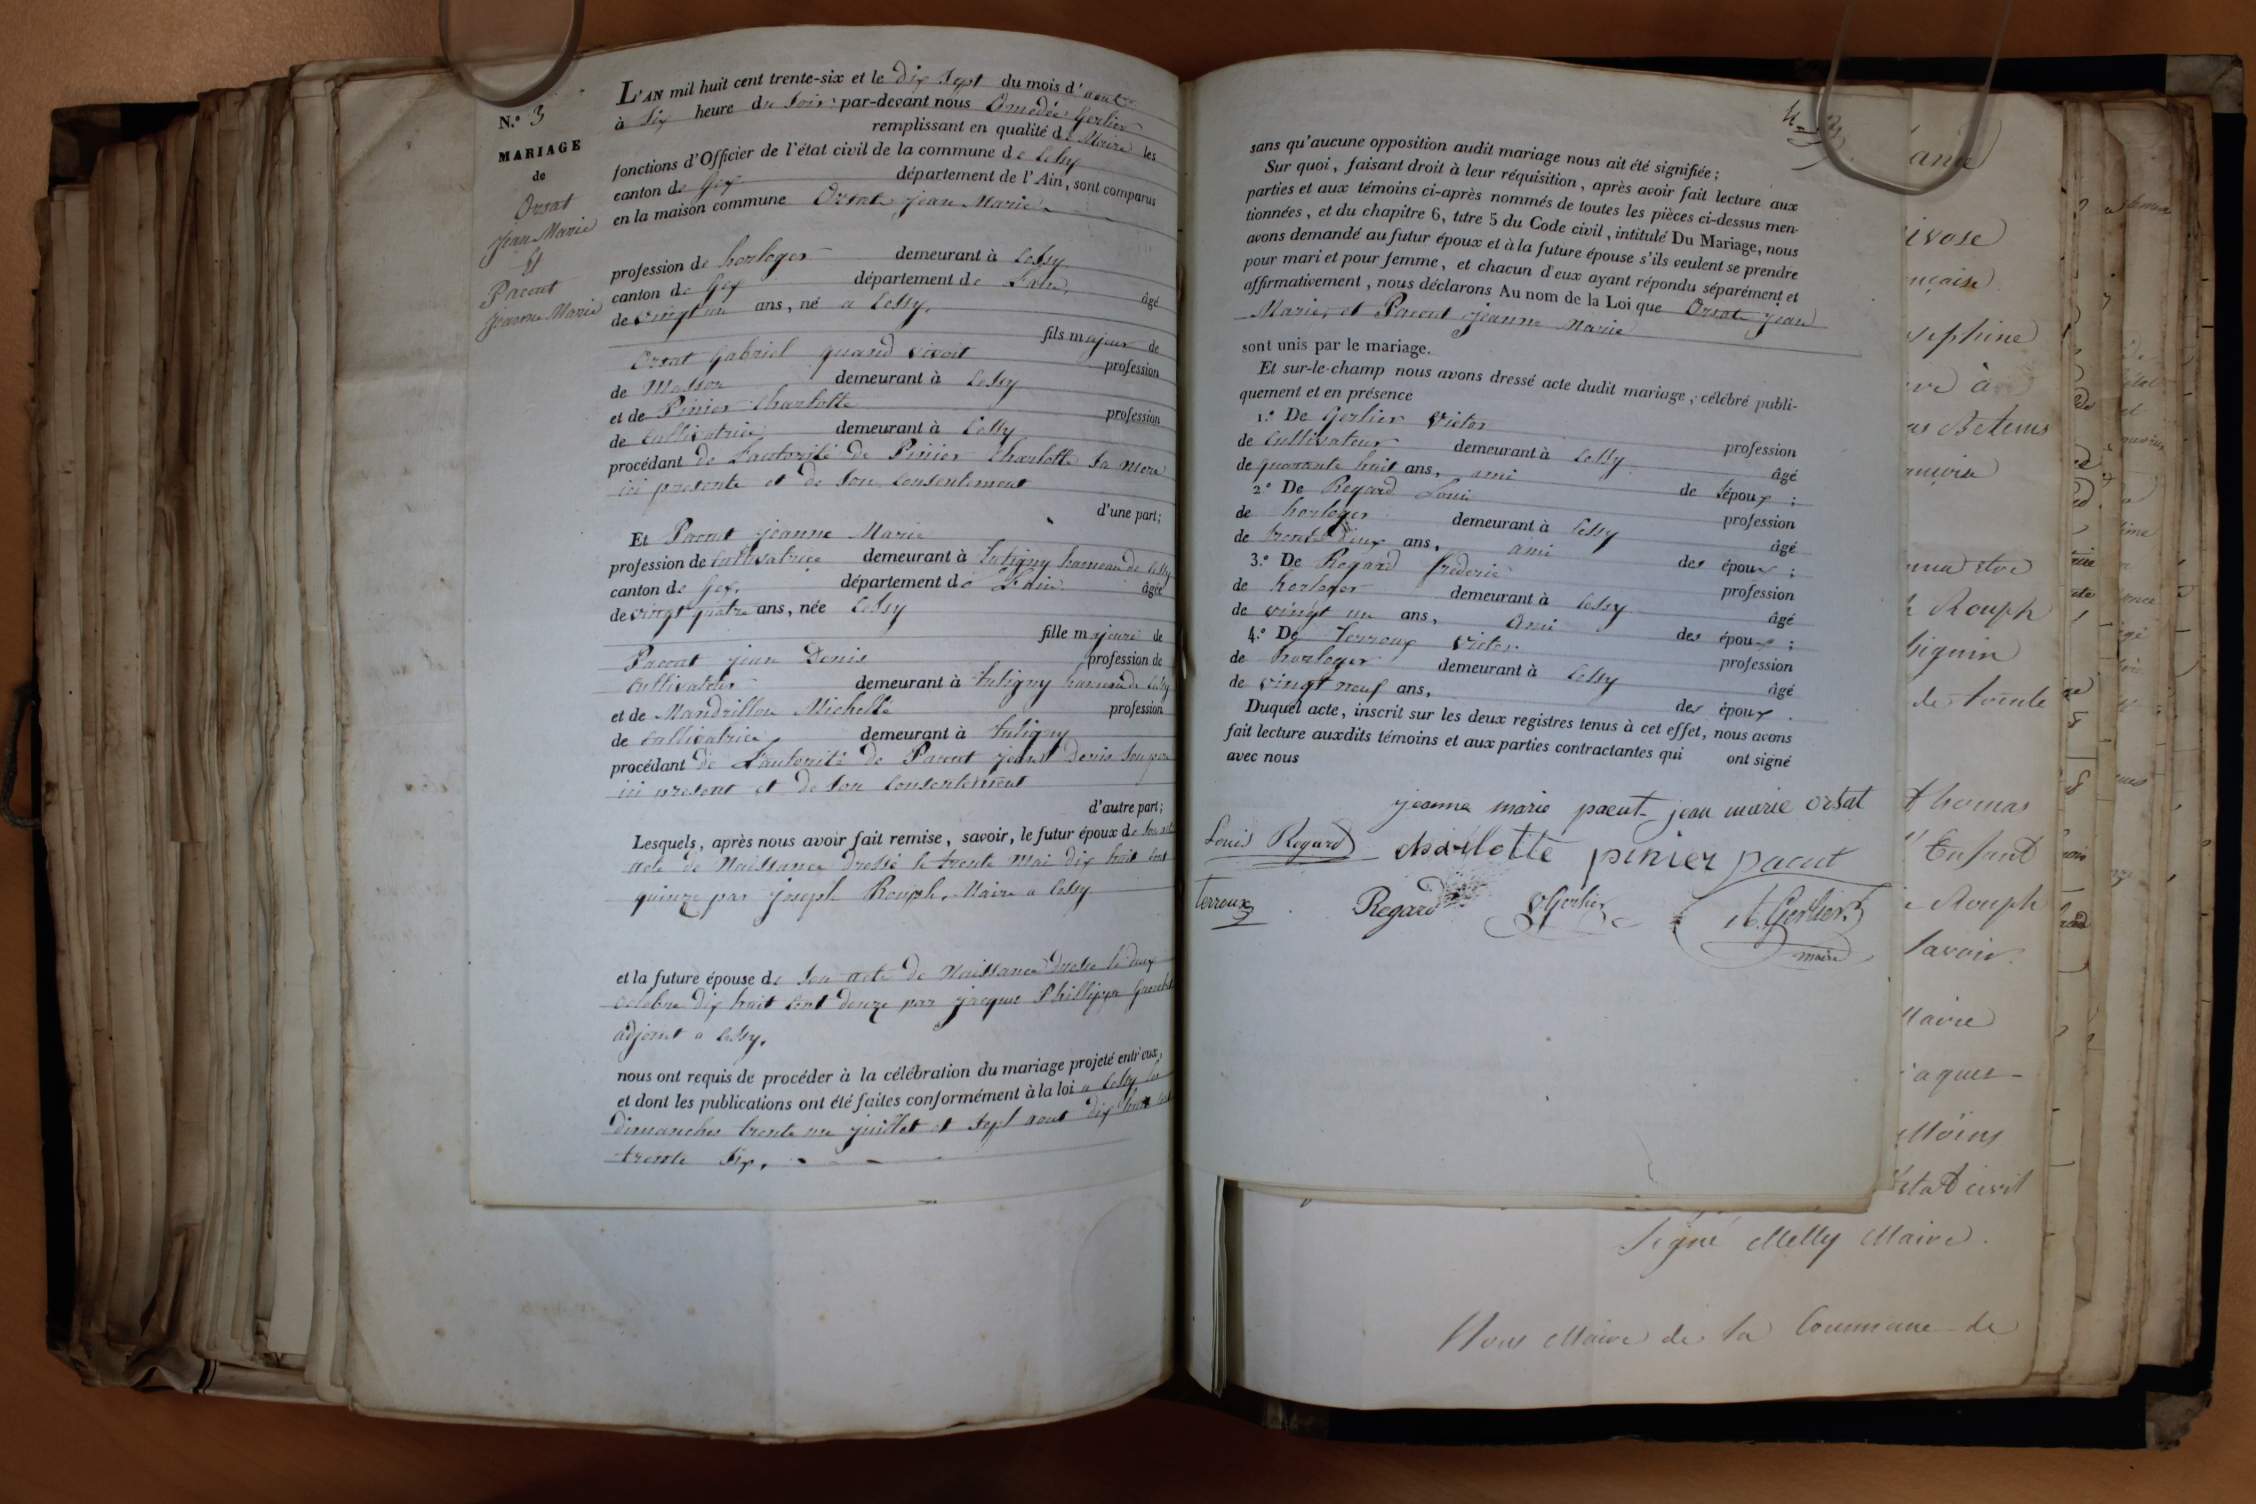 N.º 3
MARIAGE
de
Orsat
Jean Marie
Et
Pacout
Jeanne Marie
L'AN mil huit cent trente-six et le dix sept du mois d'aout
à Six heure du Soir par-devant nous Omédée Gerlier
remplissant en qualité de Maire les
fonctions d'Officier de l'état civil de la commune de Lelly
canton de Gex département de l'Ain, sont comparus
en la maison commune Orsat jean Marie
profession de horloger demeurant à Lessy
canton de Gex département de L'ain, âgé
de vingt un ans, né a Lessy,
fils majeur de
Orsat Gabriel quand vivoit profession
de Masson demeurant à Lessy
et de Pinier Charlotte profession
de Cultivatrice demeurant à Lessy
procédant de L'autorité de Pinier Charlotte Sa mere
ici presente et de Son Consentement
d'une part;
Et Pacout jeanne Marie
profession de Cultivatrice demeurant à Tutigny hameau de Lessy
canton de Gex, département de L'Ain âgée
de vingt quatre ans, née Lessy
fille majeure de
Pacout jean Denis profession de
Cultivateur demeurant à Tutigny hameau de Lessy
et de Mandrillon Michelle profession
de Cultivatrice demeurant à Tutigny
procédant de L'autorité de Pacout jean Denis Son pere
ici present et de Son Consentement
d'autre part;
Lesquels, après nous avoir fait remise, savoir, le futur époux de Son
acte de Naissance dressé le trente mai dix huit cent
quinze par joseph Rouph, Maire a Lessy
et la future épouse de Son acte de Naissance dressé le deux
octobre dix huit cent douze par jacque Phillippe
adjoint a Lessy.
nous ont requis de procéder à la célébration du mariage projeté entr'eux,
et dont les publications ont été faites conformément à la loi a Lessy les
dimanches trente un juillet et Sept aout dix huit cent
trente Six.
sans qu'aucune opposition audit mariage nous ait été signifiée;
Sur quoi, faisant droit à leur réquisition, après avoir fait lecture aux
parties et aux témoins ci-après nommés de toutes les pièces ci-dessus men-
tionnées, et du chapitre 6, titre 5 du Code civil, intitulé Du Mariage, nous
avons demandé au futur époux et à la future épouse s'ils veulent se prendre
pour mari et pour femme, et chacun d'eux ayant répondu séparément et
affirmativement, nous déclarons Au nom de la Loi que Orsat jean
Marie, et Pacout jeanne Marie
sont unis par le mariage.
Et sur-le-champ nous avons dressé acte dudit mariage, célébré publi-
quement et en présence
1.º De Gerlier Victor profession
de Cultivateur demeurant à Lessy âgé
de quarante huit ans, ami de l'époux;
2.º De Regard Loui profession
de horloger demeurant à Lessy âgé
de trente deux ans, ami des époux;
3.º De Regard frederic profession
de horloger demeurant à Lessy âgé
de vingt un ans, Ami des époux;
4.º De Terroux Victor profession
de horloger demeurant à Lessy âgé
de vingt neuf ans, des époux.
Duquel acte, inscrit sur les deux registres tenus à cet effet, nous avons
fait lecture auxdits témoins et aux parties contractantes qui ont signé
avec nous
jeanne marie pacut jean marie orsat
Louis Regard charlotte pinier pacut
Terroux Regard VGerlier A. Gerlier
maire
ivose
nçaise
osephine
Rouph
Thomas
Enfant
Rouph
Savoir.
Mairie
aques
état civil
Signé Melly Maire.
Nous Maire de la Commune de